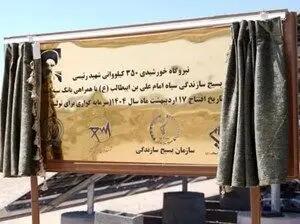 نیروگاه خورشیدی ۳۵۰ کیلوواتی شهید رئیسی
بسیج سازندگی سپاه امام علی بن ابیطالب (ع) با همراهی بانک
تاریخ افتتاح ۱۷ اردیبهشت ماه سال ۱۴۰۴ (سرمایه گذاری برای تولید
سازمان بسیج سازندگی